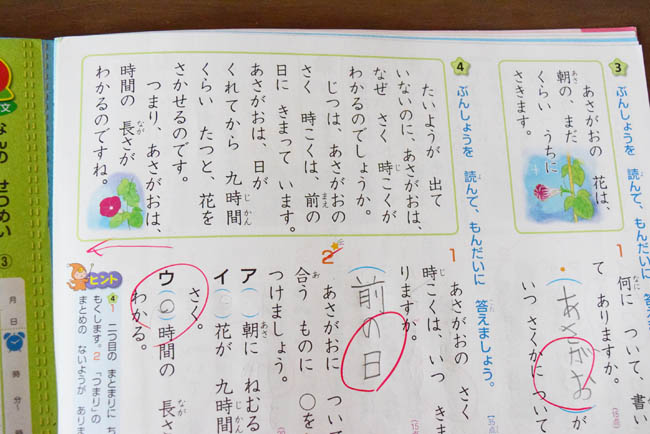 3
ぶんしょうを 読んで、もんだいに
あさがおの 花は、
朝の、まだ
くらい うちに
さきます。
1 何に ついて、書い
て ありますか。
あさがお が
いつ さくかに ついて
4
ぶんしょうを 読んで、もんだいに 答えましょう。
たいようが 出て
いないのに、あさがおは、
なぜ さく 時こくが
わかるのでしょうか。
じつは、あさがおの
さく 時こくは、前の
日に きまって います。
あさがおは、日が
くれてから 九時間
くらい たつと、花を
さかせるのです。
つまり、あさがおは、
時間の 長さが
わかるのですね。
1 あさがおの さく
時こくは、いつ きま
りますか。
前の日
2 あさがおに つい
合う ものに ○を
つけましょう。
ア( )朝に ねむる
イ( )花が 九時間
さく。
ウ(○)時間の 長さ
わかる。
ヒント
4 1 二つ目の まとまりに ち
もくします。2 「つまり」の
まとめの ないようが あり
なんの せつめい
3
月
日
時
分